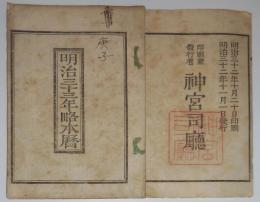 庚子
明治三十三年略本暦
明治三十二年十月二十日印刷
明治三十二年十一月一日發行
印刷兼
發行者
神宮司廳